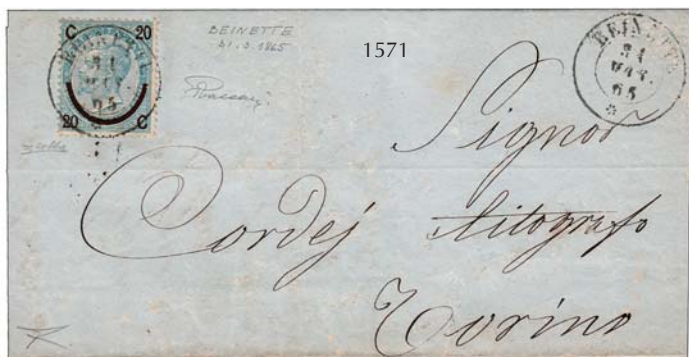 C 20
20 C
BEINETTE
31
65
BEINETTE
31.3.1865
1571
BEINETTE
31
MAR.
65
Signor
Cordej litografo
Torino